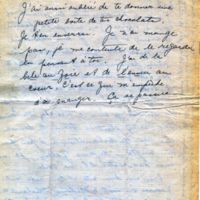 J'ai aussi oublié de te donner une
petite boite de tes chocolats.
Je t'en enverrai. Je n'ai mangé
pas, je me contente de le regarder
en pensant à toi. J'ai de la
bile au foie et de l'amour au
coeur. C'est ce qui m'empêche
d'en manger. Ça se passera